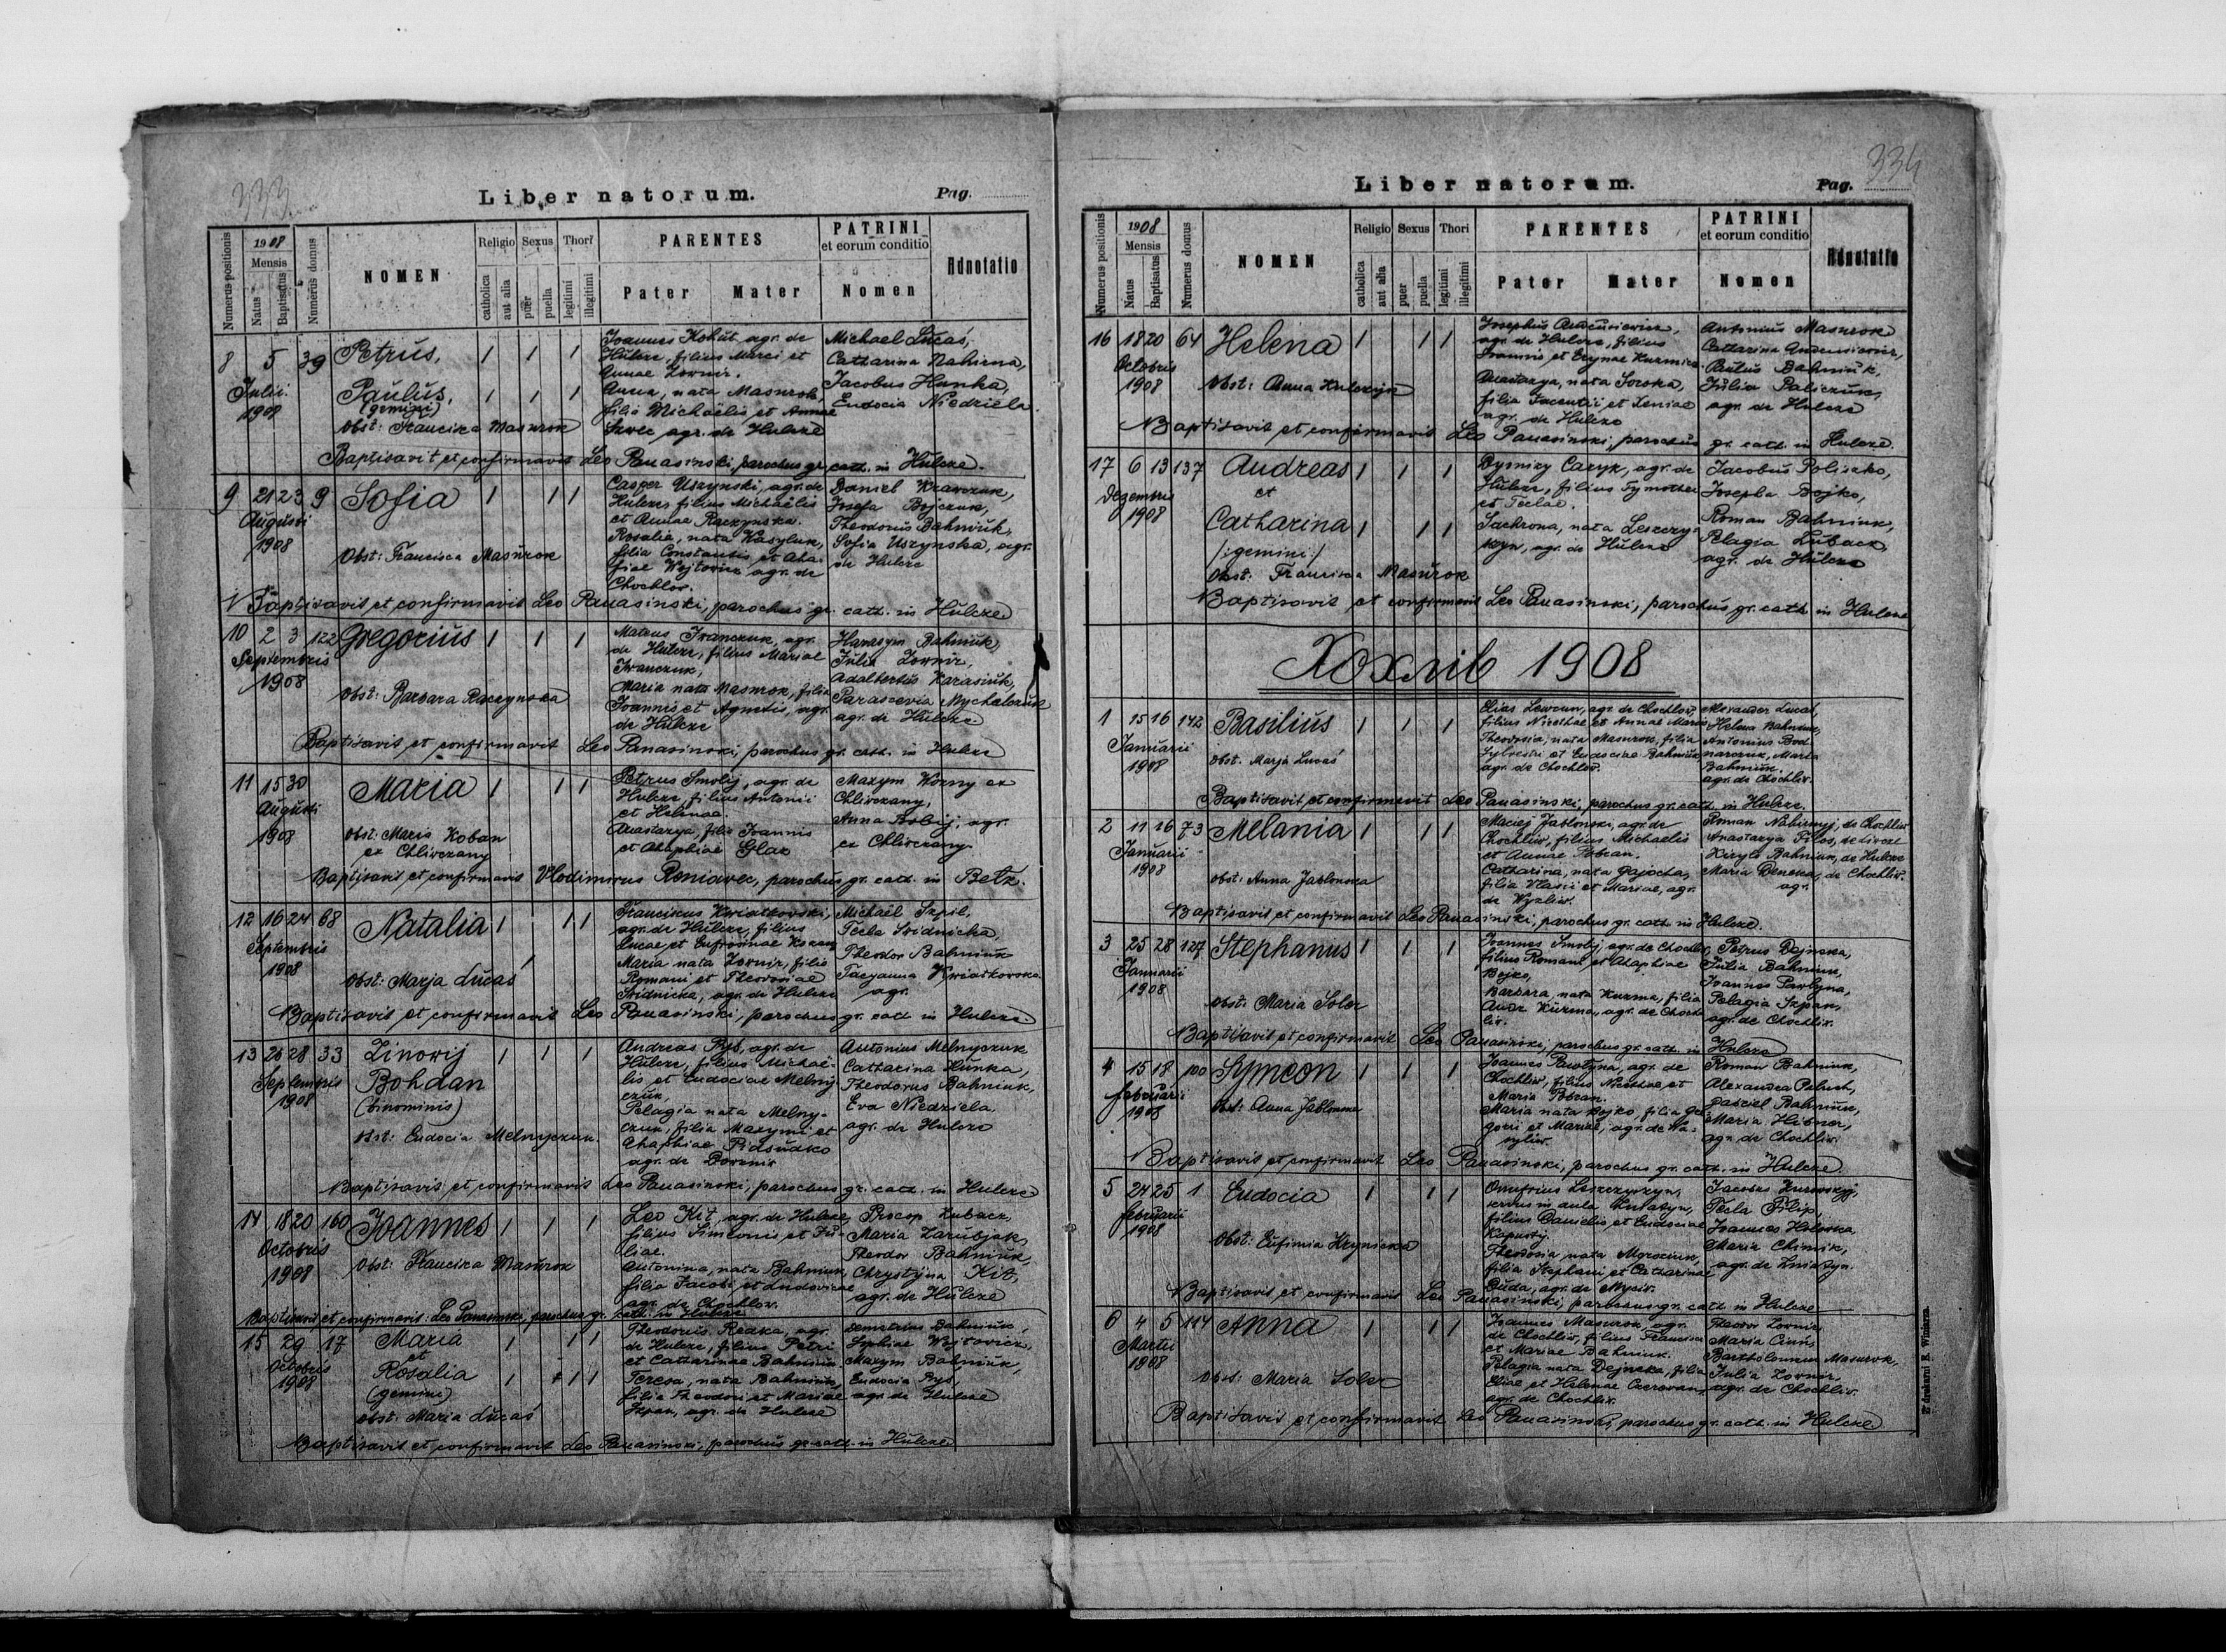 333
Liber natorum.
Pag.
Numerus positionis
1908
Mensis
Natus
Baptisatus
Numerus domus
NOMEN
Religio
catholica
aut alia
Sexus
puer
puella
Thori
legitimi
illegitimi
PARENTES
Pater
Mater
PATRINI
et eorum conditio
Nomen
Adnotatio
8 5 39 Petrus,
Julii
1908
Paulus,
(gemini)
Obst: Francisca Masurok
Joannes Kohut, agr. de
Hulcze, filius Marci et
Annae Zownir.
Anna, nata Masurok,
filia Michaëlis et Annae
Szwec agr. de Hulcze
Michael Lucas,
Catharina Nahirna,
Jacobus Hunka,
Eudocia Niedziela.
Baptisavit et confirmavit Leo Panasinski, parochus gr. cath. in Hulcze.
9 21 23 9 Sofia
Augusti
1908
Obst: Francisca Masurok
Casper Uszynski, agr. de
Hulcze, filius Michaëlis
et Annae Raczynska.
Rosalia, nata Wasyluk,
filia Constantis et Aha-
fiae Wojtowicz agr. de
Chochlow.
Daniel Krawczuk,
Josefa Bojczuk,
Theodorus Bahniuk,
Sofia Uszynska, agr.
de Hulcze
Baptisavit et confirmavit Leo Panasinski, parochus gr. cath. in Hulcze
10 2 3 122 Gregorius
Septembris
1908
Obst: Barbara Raczynska
Mateus Iwanczuk, agr.
de Hulcze, filius Mariae
Iwanczuk,
Maria nata Masurok, filia
Joannis et Agnetis, agr.
de Hulcze
Harasym Bahniuk,
Julia Zownir,
Adalbertus Karasiuk,
Parascevia Mychalczuk
agr. de Hulcze
Baptisavit et confirmavit Leo Panasinski, parochus gr. cath. in Hulcze
11 15 30 Maria
Augusti
1908
Obst: Maria Koban
ex Chliwczany
Petrus Smolij, agr. de
Hulcze, filius Antonii
et Helenae.
Anastazya, filia Joannis
et Ahaphiae Glaz
Maxym Worny ex
Chliwczany,
Anna, agr.
ex Chliwczany
Baptisavit et confirmavit Vlodimirus Roniawec, parochus gr. cath. in Betz.
12 16 24 68 Natalia
Septembris
1908
Obst: Marja Lucas
Franciscus Kwiatkovski,
agr. de Hulcze, filius
Lucae et Eufrosinae
Maria nata Zownir, filia
Romani et Theodosiae
Swidnicka, agr. de Hulcze
Michaël Szpil,
Tecla Swidnicka,
Theodor Bahniuk
Tacyanna Kwiatkovska
agr.
Baptisavit et confirmavit Leo Panasinski, parochus gr. cath. in Hulcze
13 26 28 33 Zinowij
Septembris
1908
Bohdan
(binominis)
Obst: Eudocia Melnyczuk.
Andreas Pys, agr. de
Hulcze, filius Michaë-
lis et Eudociae Melny-
czuk,
Pelagia nata Melny-
czuk, filia Maxymi et
Ahaphiae Pidsudko
agr. de
Antonius Melnyczuk
Catharina Hunka,
Theodorus Bahniuk,
Eva Niedziela
agr. de Hulcze
Baptisavit et confirmavit Leo Panasinski, parochus gr. cath. in Hulcze
14 18 20 160 Joannes
Octobris
1908
Obst: Francisca Masurok
Leo Kit, agr. de Hulcze,
filius Simeonis et Ju-
liae.
Antonina, nata Bahniuk,
filia Jacobi et Ludovicae
agr. de Chochlow.
Procop Lubacz,
Maria Zarubjak,
Theodor Bahniuk,
Chrystyna Kit,
agr. de Hulcze
Baptisavit et confirmavit: Leo Panasinski, parochus gr. cath. in Hulcze
15 29 17 Maria
Octobris
1908
et
Rosalia
(gemini)
Obst: Maria Lucas
Theodorus Redka, agr.
de Hulcze, filius Petri
et Catharinae Bahniuk
Teresa, nata Bahniuk,
filia Theodori et Mariae
Szpan, agr. de Hulcze
Demetrius Bahniuk,
Sophiae Wojtowicz,
Maxym Bahniuk,
Eudocia Pys,
agr. de Hulcze
Baptisavit et confirmavit Leo Panasinski, parochus gr. cath. in Hulcze
334
Liber natorum.
Pag.
Numerus positionis
1908
Mensis
Natus
Baptisatus
Numerus domus
NOMEN
Religio
catholica
aut alia
Sexus
puer
puella
Thori
legitimi
illegitimi
PARENTES
Pater
Mater
PATRINI
et eorum conditio
Nomen
Adnotatio
16 18 20 64 Helena
Octobris
1908
Obst: Anna Hulczyk
Josephus Andrusiewicz,
agr. de Hulcze, filius
Joannis et Erynae Kuzmicz
Anastazya, nata Soroka,
filia Jacentii et Xeniae
agr. de Hulcze
Antonius Masurok
Catharina Andrusiewicz,
Paulus Bahniuk,
Julia Paliczuk,
agr. de Hulcze
Baptisavit et confirmavit Leo Panasinski, parochus gr. cath. in Hulcze.
17 6 13 137 Andreas
Dezembris
1908
et
Catharina
/:gemini:/
Obst: Francisca Masurok
Dyonizy Cazyk, agr. de
Hulcze, filius Tymothei
et Teclae.
Sachrona, nata Leszczy-
szyn, agr. de Hulcze
Jacobus Poliszko,
Josepha Bojko,
Roman Bahniuk,
Pelagia Lubacz,
agr. de Hulcze
Baptisavit et confirmavit Leo Panasinski, parochus gr. cath. in Hulcze
Хохлів 1908
1 15 16 142 Basilius
Januarii
1908
Obst. Marja Lucas
Elias Lewczun, agr. de Chochlow,
filius Nicethae et Annae
Theodosia, nata Masurok, filia
Sylvestri et Eudociae Bahniuk,
agr. de Chochlow.
Alexander Lucas,
Helena Bahniuk,
Antonius Bod-
narczuk, Maria
Bahniuk,
agr. de Chochliw.
Baptisavit et confirmavit Leo Panasinski, parochus gr. cath. in Hulcze.
2 11 16 73 Melania
Januarii
1908
Obst: Anna Jablonska
Maciej Jablonski, agr. de
Chochliw, filius Michaelis
et Annae Pobran.
Catharina, nata Gajocha,
filia Vlasii et Mariae, agr.
de Wyzliw.
Roman Nahirnyj, de Chochliw
Anastazya Filos, de Liwcze
Kirylo Bahniuk, de Hulcze
Maria Deneka, de Chochliw.
agr.
Baptisavit et confirmavit Leo Panasinski, parochus gr. cath. in Hulcze.
3 25 28 127 Stephanus
Januarii
1908
Obst: Maria Soler
Joannes Smolij, agr. de Chochliw,
filius Romani et Ahaphiae
Bojko,
Barbara, nata Kuzma, filia
Kuzma, agr. de Choch-
liw.
Petrus Dejneka,
Julia Bahniuk,
Joannes Pawlyna,
Pelagia Szpan,
agr. de Chochliw.
Baptisavit et confirmavit Leo Panasinski, parochus gr. cath. in Hulcze
4 15 18 100 Symeon
februarii
1908
Obst: Anna Jablonska
Joannes Pawlyna, agr. de
Chochliw, filius Nicethae et
Maria Pobran.
Maria nata Bojko, filia Gre-
gorii et Mariae, agr. de Wa-
syliw.
Roman Bahniuk,
Alexandra Pelech,
Gabriel Bahniuk,
Maria Hibner,
agr. de Chochliw.
Baptisavit et confirmavit Leo Panasinski, parochus gr. cath. in Hulcze
5 24 25 1 Eudocia
februarii
1908
Obst: Eufimia Hrynicka
Onufrius Leszczyszyn,
servus in aula Zniatyn,
filius Danielis et Eudociae
Kapusty.
Theodosia nata Mroczuk,
filia Stephani et Catharinae
Duda, agr. de Mycow.
Jacobus Kurowskyj,
Tecla Filip,
Joannes Holowka,
Maria Chimik,
agr. de Zniatyn.
Baptisavit et confirmavit Leo Panasinski, parochus gr. cath. in Hulcze
6 4 5 114 Anna
Martii
1908
Obst: Maria Soler
Joannes Masurok, agr.
de Chochliw, filius Francisci
et Mariae Bahniuk.
Pelagia nata Dejneka, filia
Eliae et Helenae Czerovan,
agr. de Chochliw.
Theodor Zownir,
Maria Ciun,
Bartholomeus Masurok,
Julia Zownir,
agr. de Chochliw.
Baptisavit et confirmavit Leo Panasinski, parochus gr. cath. in Hulcze
Z drukarni E. Winiarza